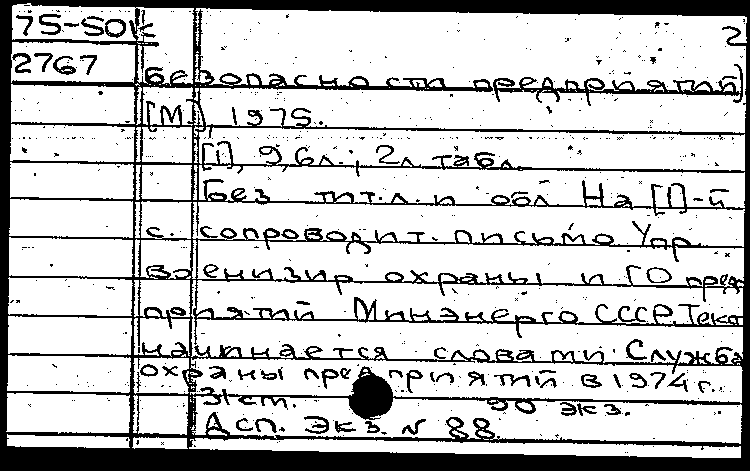 75-50к 2
2767
безопасности предприятий]
[М.], 1975.
[1], 9, 6л.; 2л. табл.
Без тит.л. и обл На [1]-й
с. сопроводит. письмо Упр
военизир охраны и ГО пред-
приятий Минэнерго СССР. Текст
начинается словами: Служба
охраны предприятий в 1974 г.
31 cm. 90 экз.
Дсп. Экз. № 88